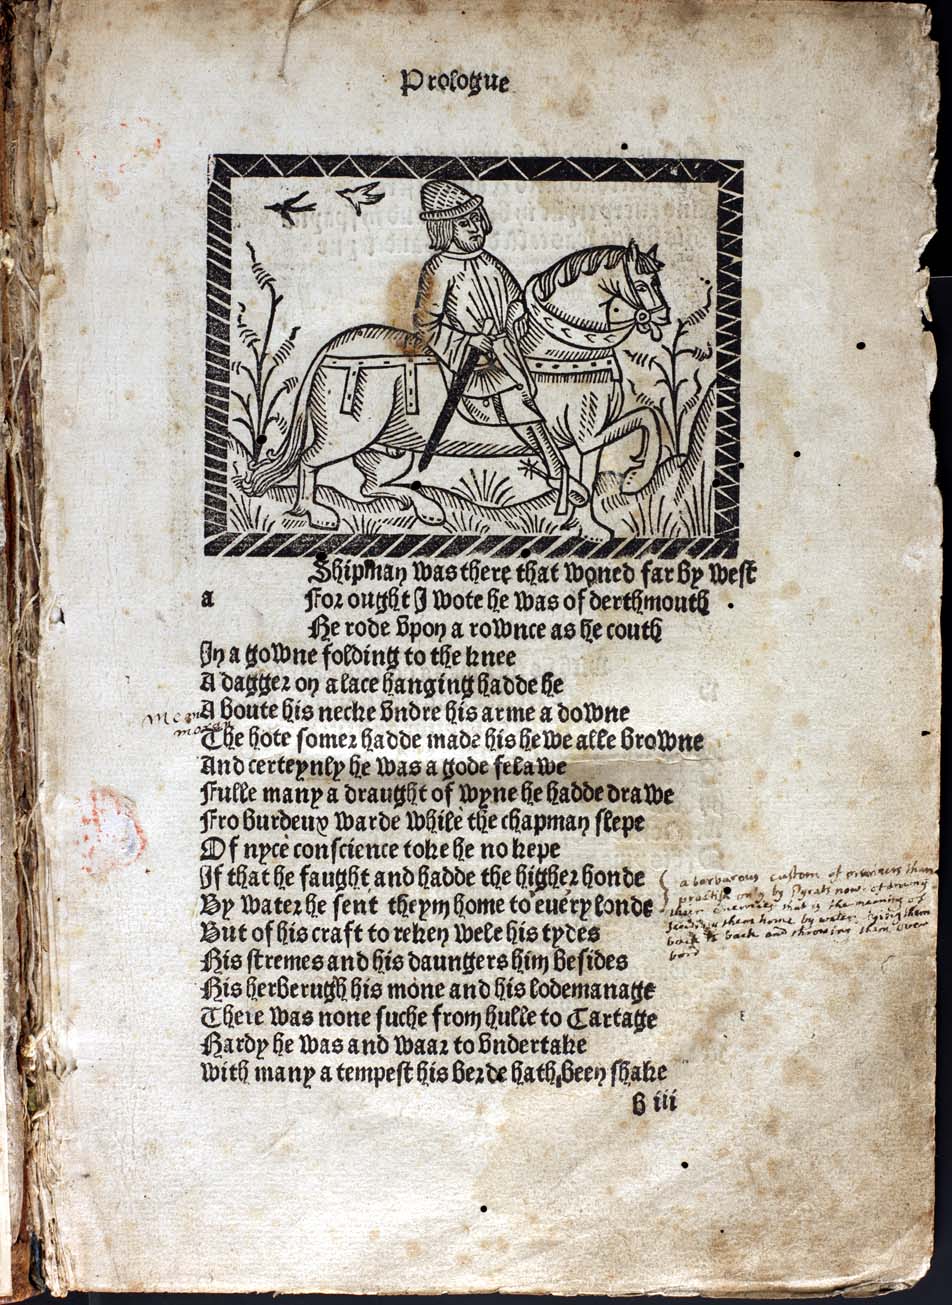 Prologue
Shipman was there that woned far by west
a
For ought I wote he was of derthmouth
He rode vpon a rownce as he couth
In a gowne folding to the knee
A dagger on a lace hanging hadde he
A boute his necke vndre his arme a downe
The hote somer hadde made his hewe alle browne
And certeynly he was a gode felawe
Fulle many a draught of wyne he hadde drawe
Fro burdeux warde while the chapman slepe
Of nyce conscience toke he no kepe
If that he faught and hadde the higher honde
By water he sent theym home to euery londe
But of his craft to reken wele his tydes
His stremes and his daungers him besides
His herberugh his mone and his lodemanage
There was none suche from hulle to Cartage
Hardy he was and waar to vndertake
with many a tempest his berde hath been shake
b iii
a barbarous custom of mariners than
practise only by Pyrats now. of drowning
their Enemies that is the meaning of
sending them home by water. tying them
back to back and throwing them over
bord